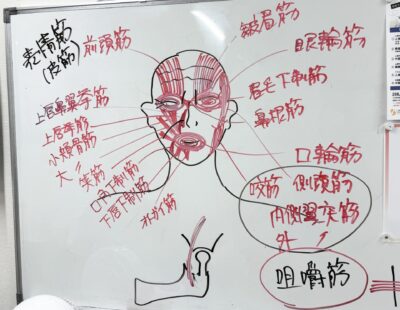 表情筋
(皮筋)
前頭筋
皺眉筋
眼輪筋
眉毛下制筋
鼻根筋
上唇鼻翼挙筋
上唇挙筋
小頬骨筋
大〃
笑筋
口角下制筋
下唇下制筋
オトガイ筋
口輪筋
咬筋
側頭筋
内側翼突筋
外〃
咀嚼筋